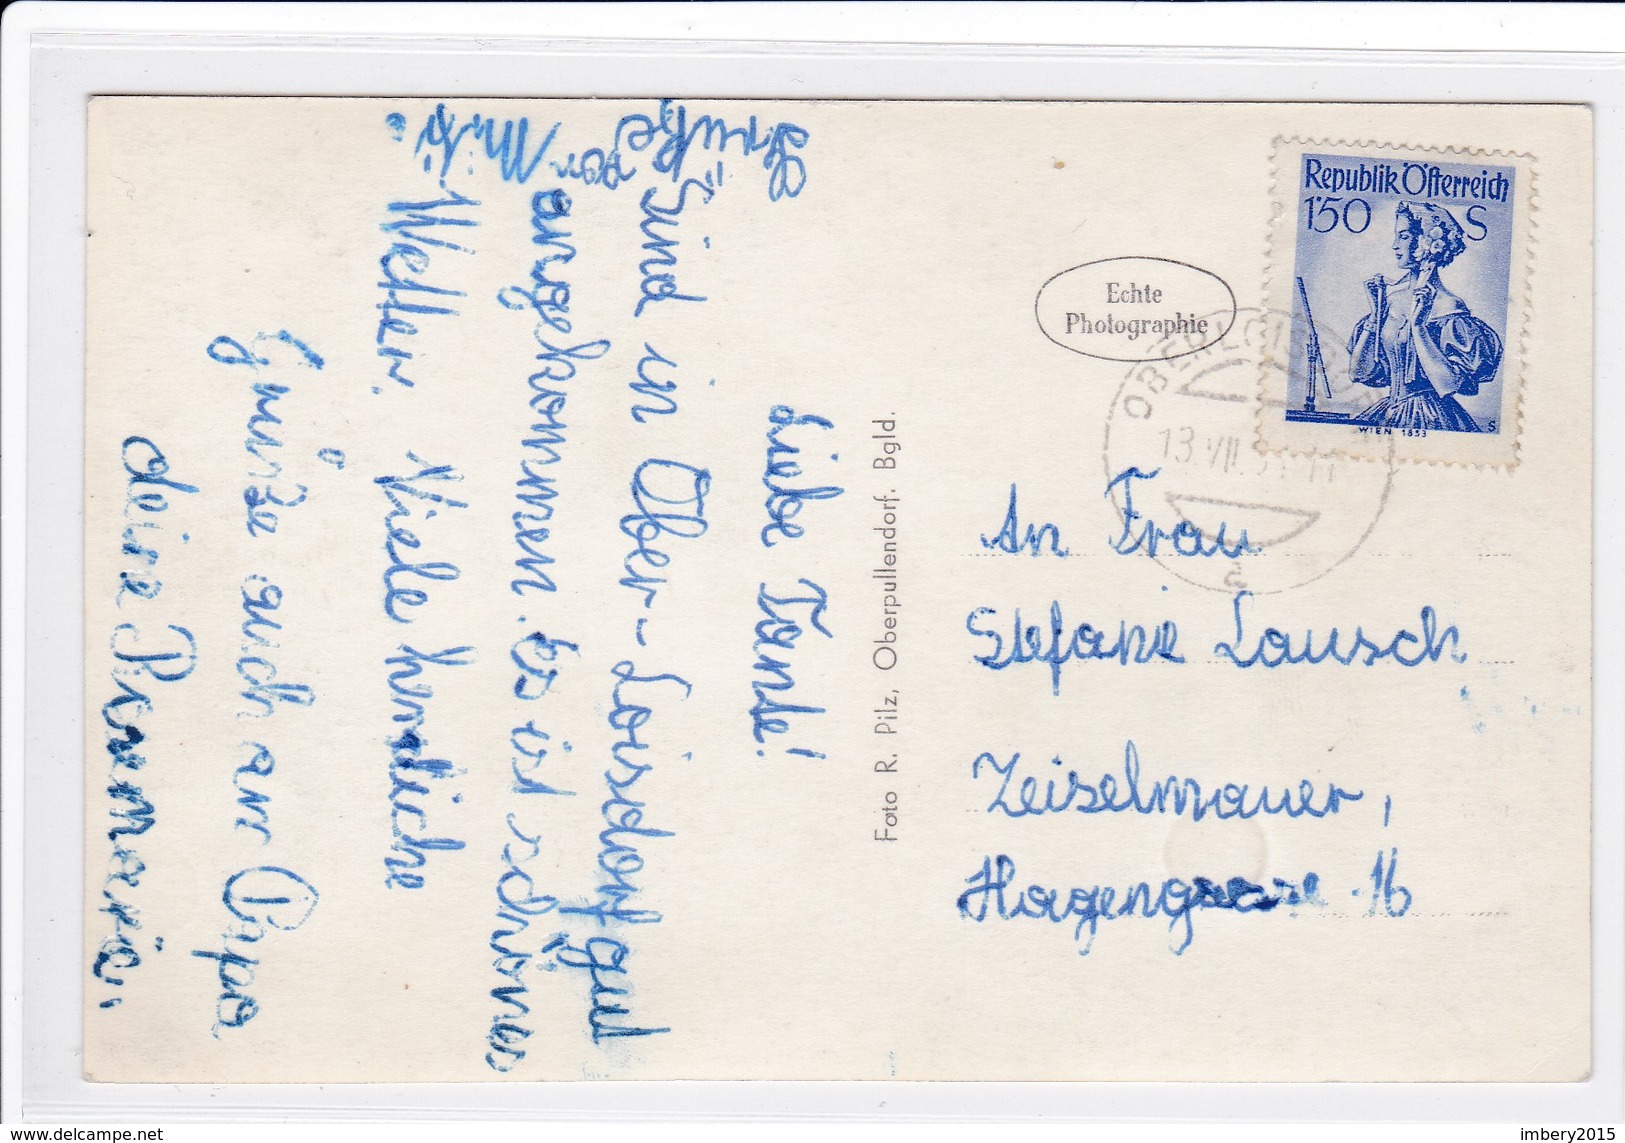 Liebe Tante!
Sind in Ober-Loisdorf gut
angekommen. Es ist schönes
Wetter. Viele herzliche
Grüße auch an Papa
deine Rosemarie.
Grüße
von
Mitzi.
Echte
Photographie
Foto R. Pilz, Oberpullendorf. Bgld.
Republik Österreich
1'50 S
WIEN 1853
OBERLOISDORF
13.VII.
a
An Frau
Stefanie Lausch
Zeiselmauer,
Hagengasse 16
www.delcampe.net
imbery2015